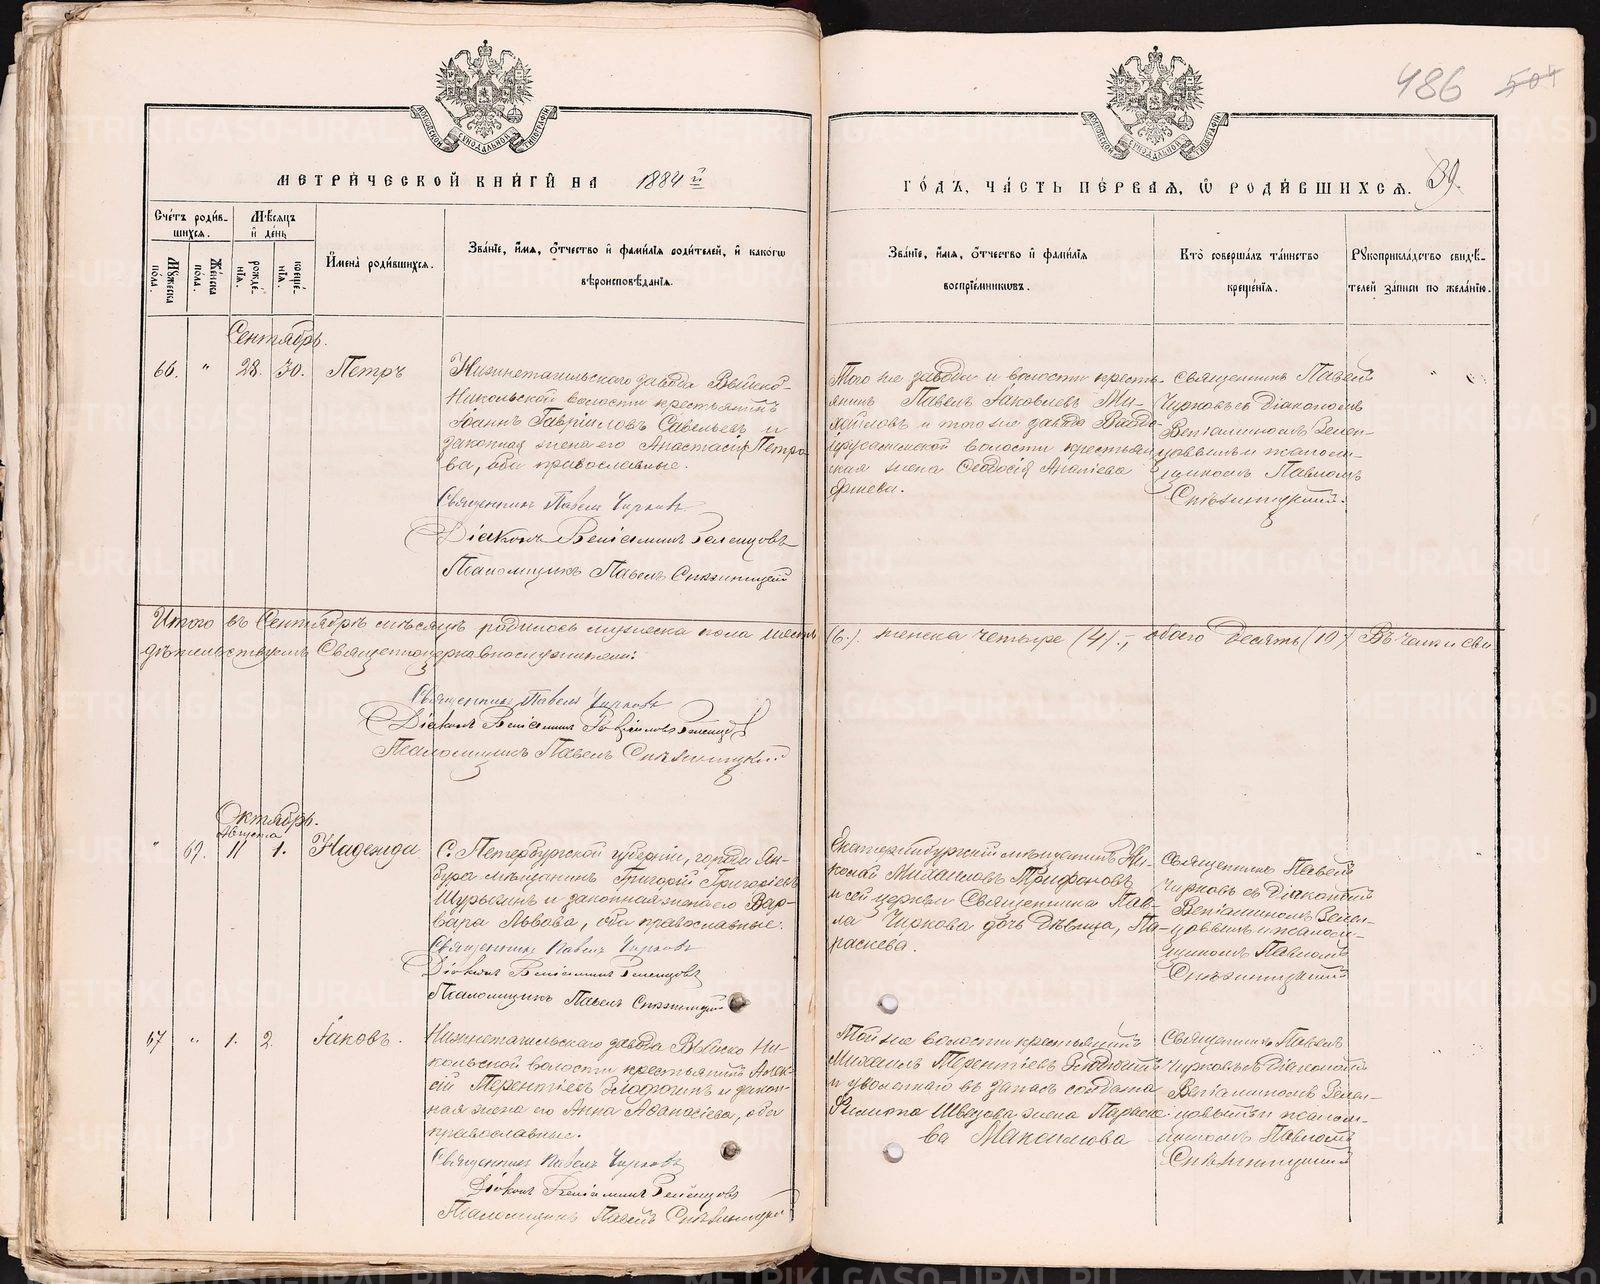 486 504
МОСКОВСКОЙ СѴНОДАЛЬНОЙ ТИПОГРАФІИ
МОСКОВСКОЙ СѴНОДАЛЬНОЙ ТИПОГРАФІИ
МЕТРИ́ЧЕСКОЙ КНИ́ГИ НА 1884 й
ГО́ДЪ, ЧА́СТЬ ПЕ́РВАЯ, Ѡ РОДИ́ВШИХСЯ. 39.
Сче́тъ роди́в-
шихся.
Мꙋжеска пола.
Же́нска пола.
Мѣ́сяцъ и҆ де́нь
рожде́нія.
креще́нія.
И҆мена̀ роди́вшихся.
Зва́нїе, и҆́мя, ѻ҆́тчество и҆ фами́лїя роди́телей, и҆ како́гѡ
вѣроисповѣ́данїя.
Зва́нїе, и҆́мя, ѻ҆́тчество и҆ фами́лїя
воспрїе́мниковъ.
Кто̀ соверша́лъ та́инство
креще́нїя.
Рꙋкоприкла́дство свидѣ́-
телей за́писи по жела́нїю.
Сентябрь.
66. " 28. 30. Петръ
Нижнетагильскаго завода Выйско-
Никольской волости крестьянинъ
Іоаннъ Гавріиловъ Савельевъ и
законная жена его Анастасія Петро-
ва, оба православные.
Священникъ Павелъ Чирковъ
Діаконъ Веніаминъ Зеленцовъ
Псаломщикъ Павелъ Снѣжницкій
Того же завода и волости кресть-
янинъ Павелъ Іаковлевъ Ми-
хайловъ и того же завода
волости крестьян
ская жена Ѳеодосія
Священникъ Павелъ
Чирковъ съ Діакономъ
Веніаминомъ Зелен-
цовымъ и псалом-
щикомъ Павломъ
Снѣжницкимъ.
Итого въ Сентябрѣ мѣсяцѣ родилось мужеска пола шесть (6.), женска четыре (4).; обоего десять (10) Въ чемъ и сви
дѣтельствуемъ Священноцерковнослужители:
Священникъ Павелъ Чирковъ
Діаконъ Веніаминъ Гавріиловъ Зеленцовъ
Псаломщикъ Павелъ Снѣжницкій
Октябрь.
Августа
" 69. 11 1. Надежда
С. Петербургской губерніи, города Ям-
бурга мѣщанинъ Григорій Григоріевъ
Шурыгинъ и законная жена его Вар-
вара Львова, оба православные.
Священникъ Павелъ Чирковъ
Діаконъ Веніаминъ Зеленцовъ
Псаломщикъ Павелъ Снѣжницкій
Екатеринбургскій мѣщанинъ Ни-
колай Михаиловъ Трифоновъ
и сей церкви Священника Пав-
ла Чиркова дочь дѣвица, Па-
раскева.
Священникъ Павелъ
Чирковъ съ Діакономъ
Веніаминомъ Зелен-
цовымъ и псалом-
щикомъ Павломъ
Снѣжницкимъ
67 " 1. 2. Іаковъ.
Нижнетагильскаго завода Выйско Ни-
кольской волости крестьянинъ Алек-
сій Терентіевъ и закон-
ная жена его Анна Аѳанасіева, оба
православные.
Священникъ Павелъ Чирковъ
Діаконъ Веніаминъ Зеленцовъ
Псаломщикъ Павелъ Снѣжницкій
Той же волости крестьянинъ
Михаилъ Терентіевъ
и уволеннаго въ запасъ солдата
Филиппа Швецова жена Параске-
ва Максимова
Священникъ Павелъ
Чирковъ съ Діакономъ
Веніаминомъ Зелен-
цовымъ и псалом-
щикомъ Павломъ
Снѣжницкимъ
METRIKI.GASO-URAL.RU